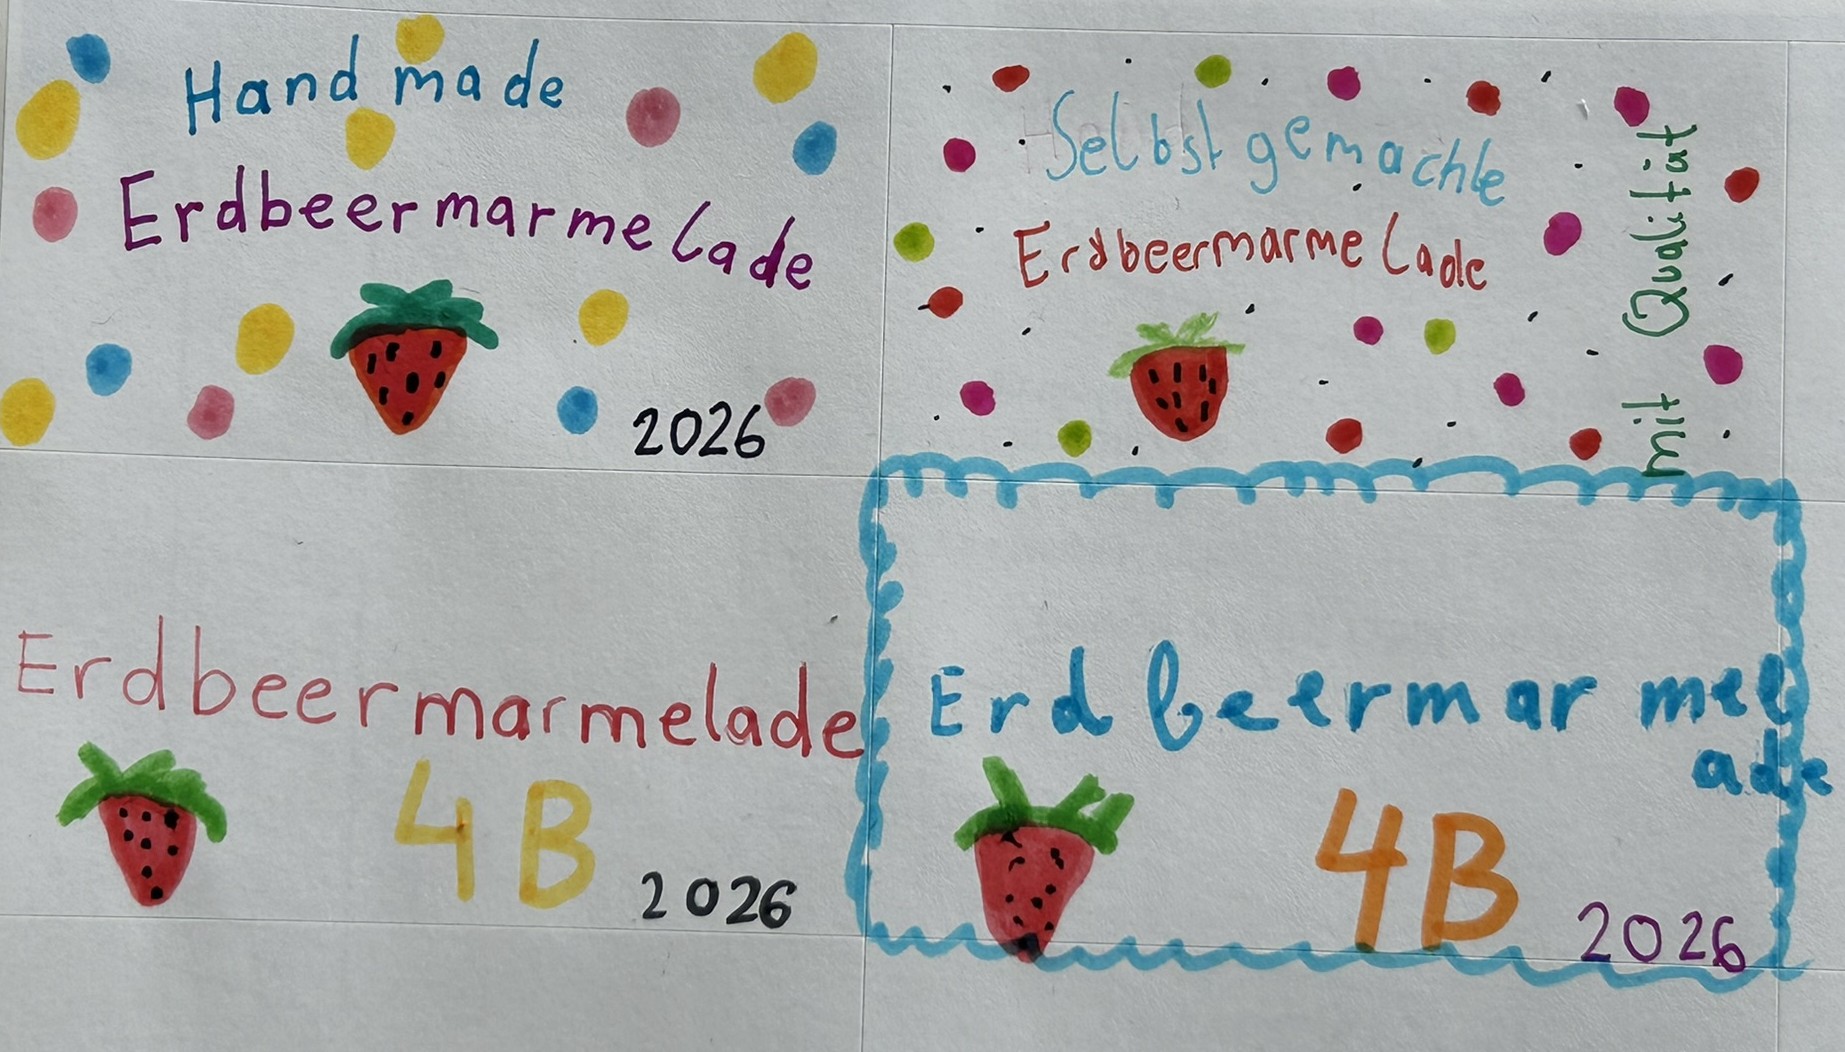 Hand made
Erdbeermarmelade
2026
Selbst gemachte
Erdbeermarmelade
mit Qualität
Erdbeermarmelade
4B
2026
Erdbeermarmel
ade
4B
2026